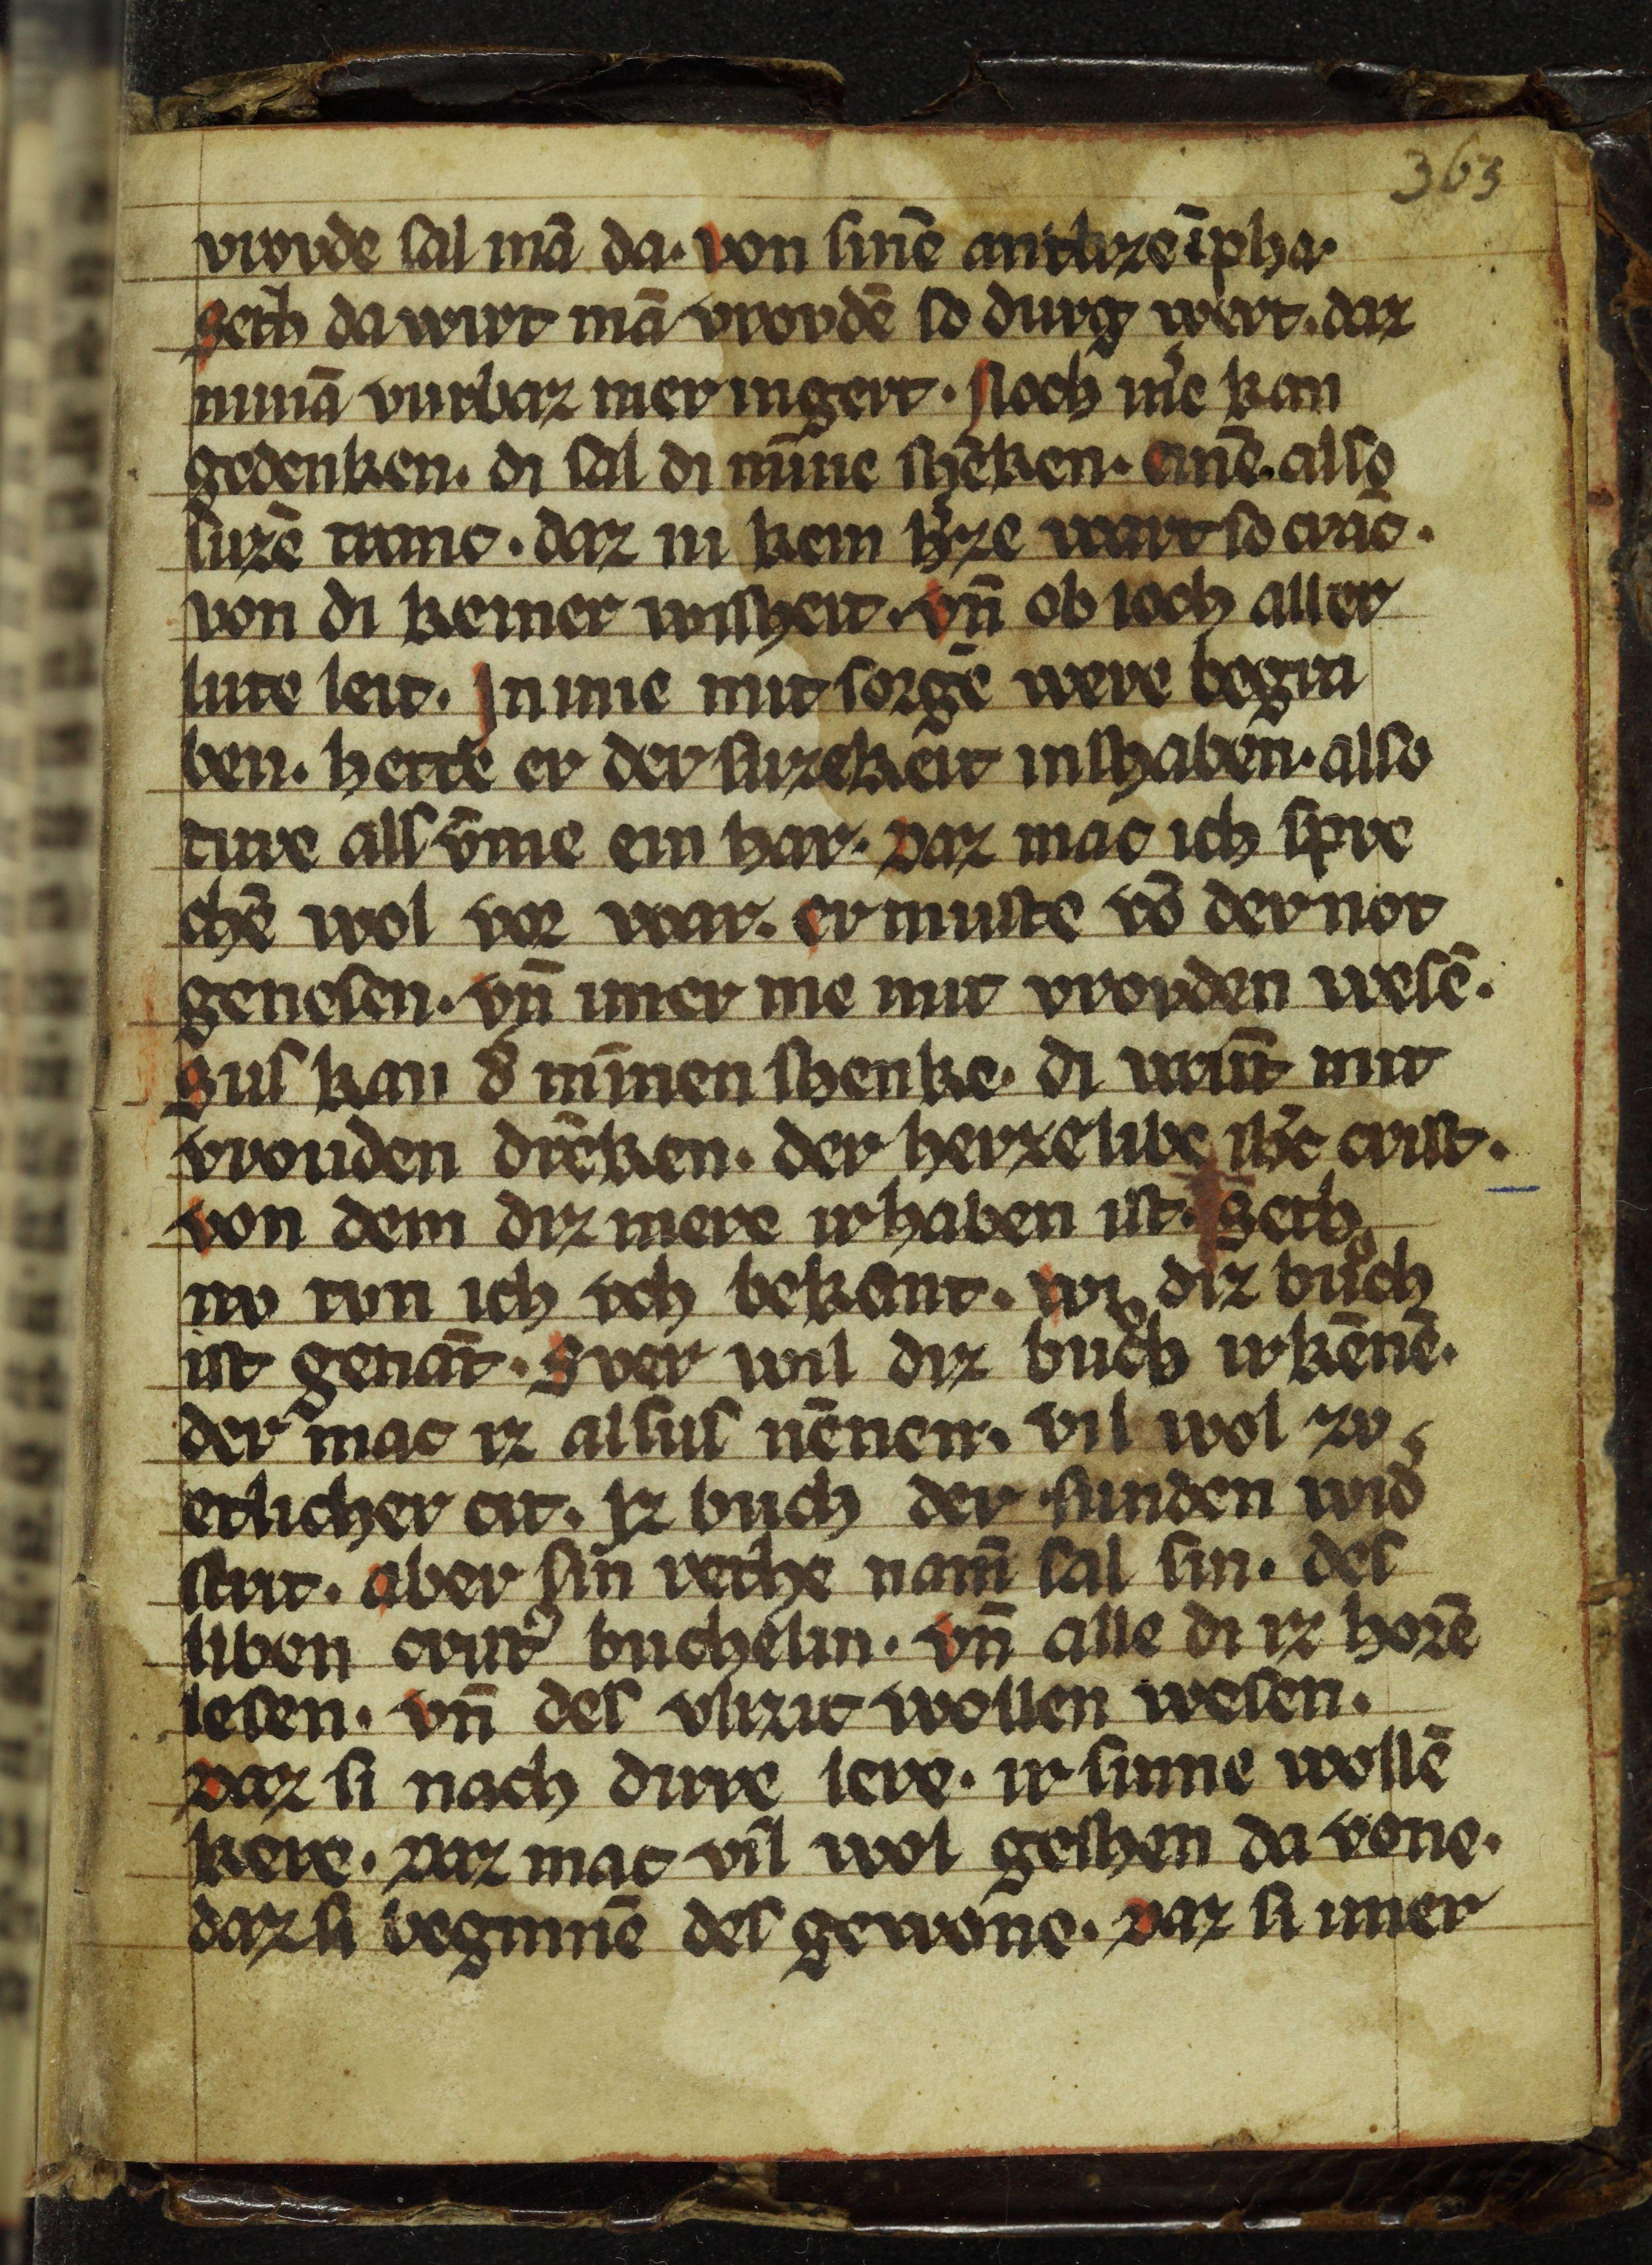 363
vrovde sal mā da. von sinē antlizē īpha.
Seth da wirt mā vrovdē so durg wert. daz
nimā vurbaz mer ingert. Noch m̓e kan
gedenken. di sal di mīne shēken. einē. also
suzē tranc. daz ni kein h̓ze wart so cranc̄.
von di keiner wisheit. vn̄ ob ioch aller
lute leit. In ime mit sorgē were begra
ben. hette er der suzekeit inshaben. also
ture als v̄me ein har. Daz mac ich spre
chē wol vor war. er muste vō der not
genesen. vn̄ imer me mit vrovden wesē.
Sus kan d̓ mīnen shenke. di vrūt mit
vrouden drēken. der herze libe ih̓c crist.
von dem diz mere irhaben ist. Seth
nv tvn ich vch bekant. wi diz buͦch
ist genāt. Swer wil diz buͦch irkēnē.
der mac iz alsus nēnen. vil wol zv
etlicher cit. Iz buch der sunden wid̓
strit. aber sin rethe nam̄ sal sin. des
liben crist̓ buchelin. vn̄ alle di iz horē
lesen. vn̄ des vlizic wollen wesen.
Daz si nach dirre lere. ir sinne wollē
kere. Daz mac vil wol geshen da vone.
daz si beginnē des gewone. Daz si imer